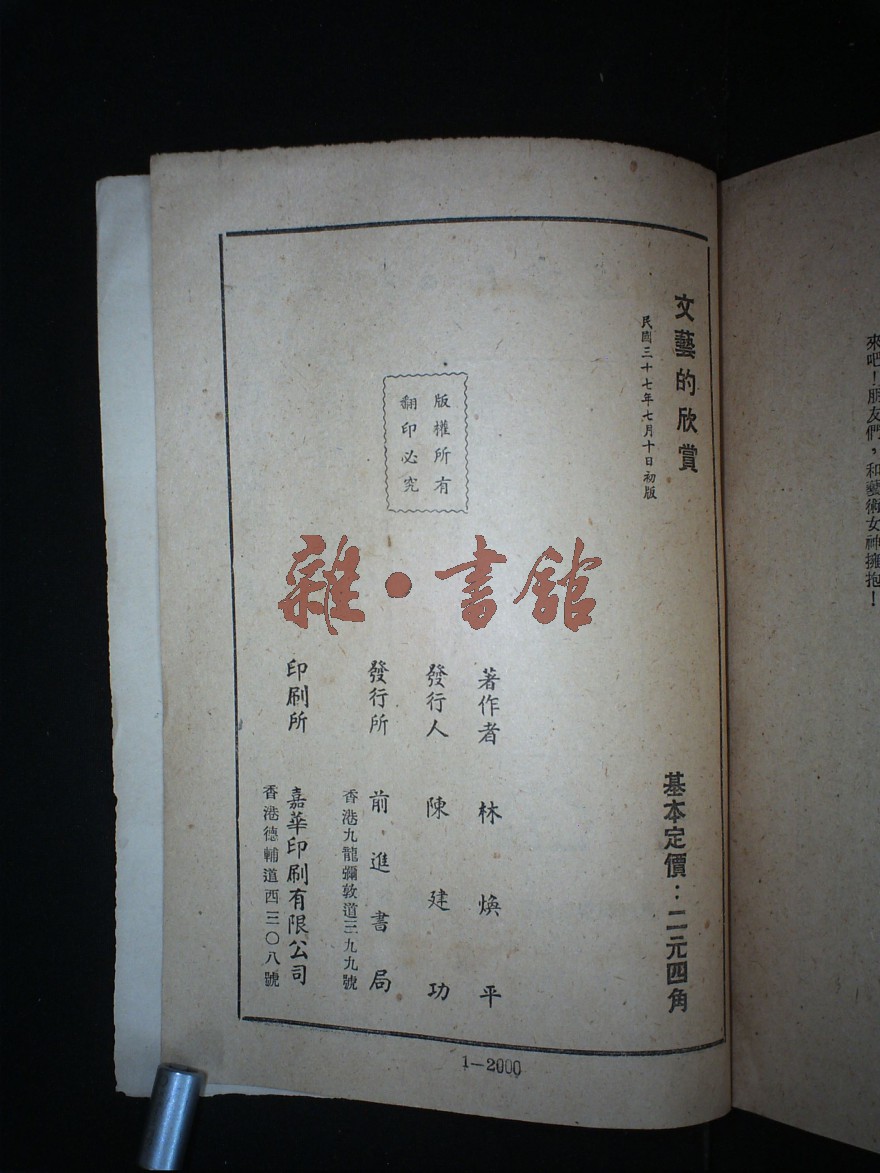 來吧！朋友們，和藝術女神擁抱！
文藝的欣賞
民國三十七年七月十日初版
基本定價：二元四角
版權所有
翻印必究
雜·書館
著作者 林煥平
發行人 陳建功
發行所 前進書局
香港九龍彌敦道三九九號
印刷所 嘉華印刷有限公司
香港德輔道西三〇八號
1—2000